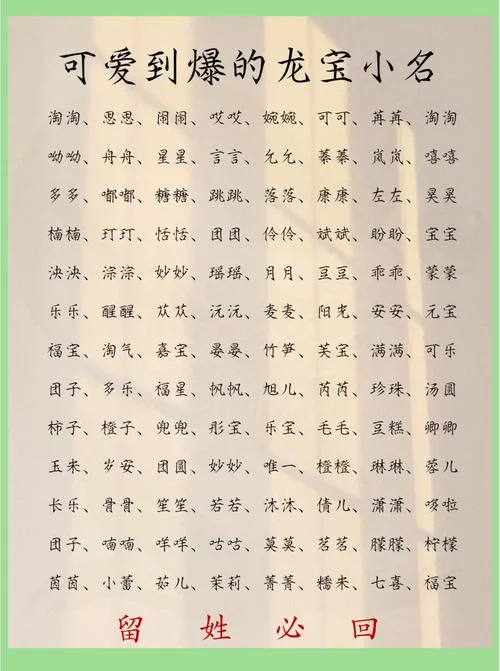 可爱到爆的龙宝小名
淘淘、思思、闹闹、哎哎、婉婉、可可、苒苒、淘淘
呦呦、舟舟、星星、言言、允允、蓁蓁、岚岚、嘻嘻
多多、嘟嘟、糖糖、跳跳、落落、康康、左左、昊昊
楠楠、玎玎、恬恬、团团、伶伶、斌斌、盼盼、宝宝
泱泱、淙淙、妙妙、瑶瑶、月月、豆豆、乖乖、蒙蒙
乐乐、醒醒、苁苁、沅沅、麦麦、阳光、安安、元宝
福宝、淘气、嘉宝、晏晏、竹笋、芙宝、满满、可乐
团子、多乐、福星、帆帆、旭儿、芮芮、珍珠、汤圆
柿子、橙子、兜兜、彤宝、乐宝、毛毛、豆糕、卿卿
玉米、岁安、团圆、妙妙、唯一、橙橙、琳琳、蓉儿
长乐、骨骨、笙笙、若若、沐沐、倩儿、潇潇、哆啦
团子、喃喃、咩咩、咕咕、莫莫、茗茗、朦朦、柠檬
茵茵、小蕾、茹儿、茉莉、菁菁、糯米、七喜、福宝
留姓必回